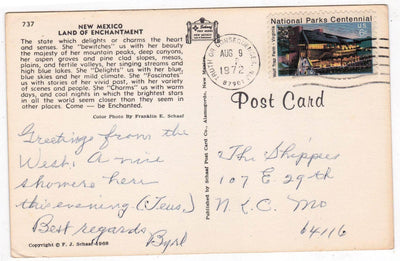 737
NEW MEXICO
LAND OF ENCHANTMENT
The state which delights or charms the heart
and senses. She "bewitches" us with her beauty
the majesty of her mountain peaks, deep canyons,
her aspen groves and pine clad slopes, mesas,
plains, and fertile valleys, her singing streams and
high blue lakes. She "Delights" us with her blue,
blue skies and her mild climate. She "Fascinates"
us with stories of her vivid past, with her variety
of scenery and people. She "Charms" us with warm
days, and cool nights in which the brightest stars
in all the world seem closer than they seem in
other places. Come — be Enchanted.
Color Photo By Franklin K. Schaaf
Greetings from the
West; A nice
showers here
this evening (Tues.)
Best regards
Byrl
Copyright © F. J. Schaaf 1968
Published by Schaaf Post Card Co., Alamogordo, New Mexico
TRUTH OR CONSEQUENCES,
AUG 9
1972
National Parks Centennial
Post Card
The Shippee
107 E 29th
N. K. C. Mo
64116